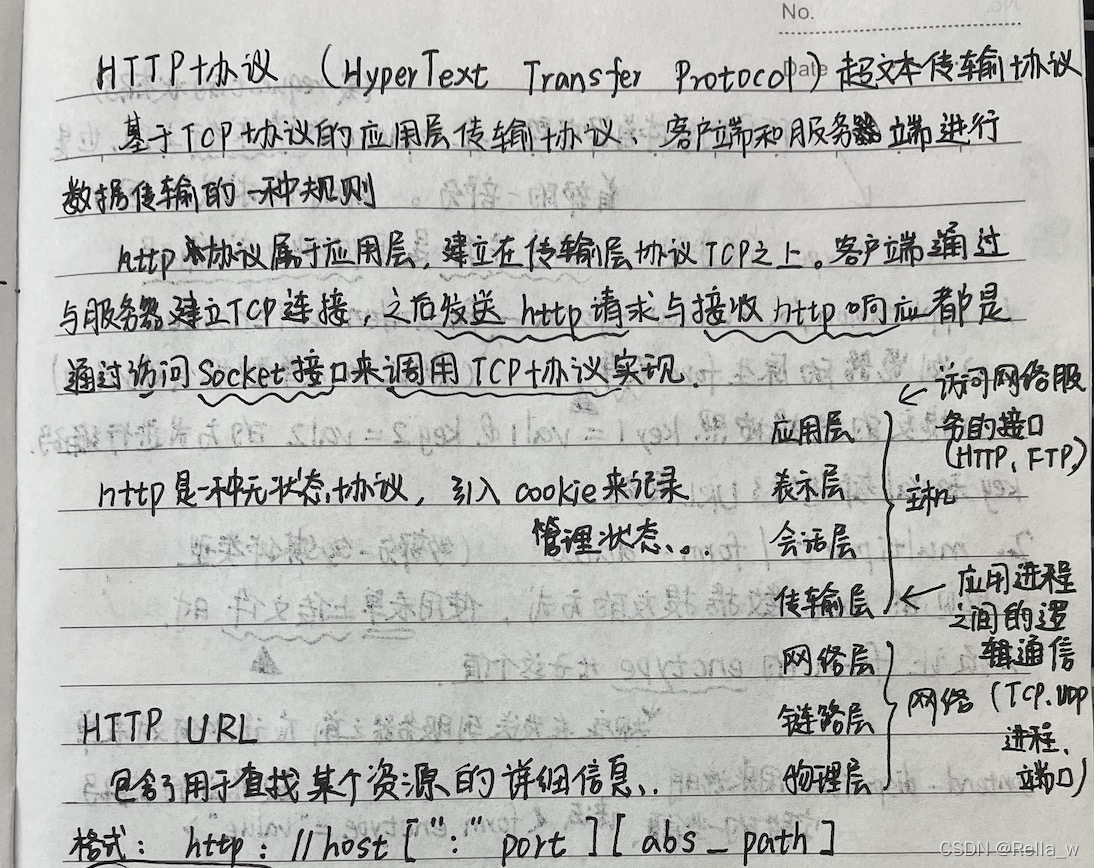 No.
Date
HTTP协议 (HyperText Transfer Protocol) 超文本传输协议
基于TCP协议的应用层传输协议、客户端和服务器端进行
数据传输的一种规则
http协议属于应用层,建立在传输层协议TCP之上。客户端通过
与服务器建立TCP连接,之后发送http请求与接收http响应都是
通过访问Socket接口来调用TCP协议实现.
应用层
访问网络服
务的接口
(HTTP、FTP)
http是一种无状态协议, 引入cookie来记录
管理状态...
表示层
主机
会话层
传输层
应用进程
之间的逻
辑通信
(TCP、UDP
进程、
端口)
网络层
链路层
网络
物理层
HTTP URL
包含了用于查找某个资源的详细信息..
格式: http://host[":"port][abs_path]
CSDN @Rella_w